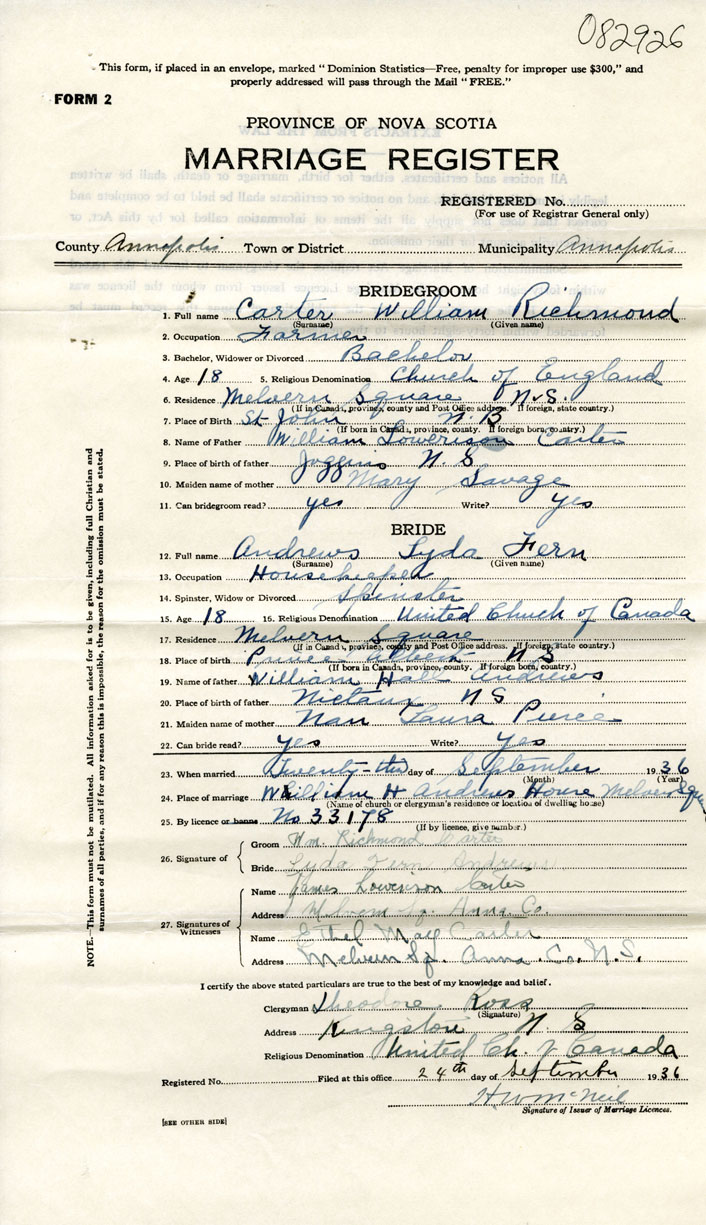 082926
This form, if placed in an envelope, marked "Dominion Statistics—Free, penalty for improper use $300," and
properly addressed will pass through the Mail "FREE."
FORM 2
PROVINCE OF NOVA SCOTIA
MARRIAGE REGISTER
REGISTERED No.
(For use of Registrar General only)
County Annapolis Town or District Municipality Annapolis
BRIDEGROOM
1. Full name Carter William Richmond
(Surname) (Given name)
2. Occupation Farmer
3. Bachelor, Widower or Divorced Bachelor
4. Age 18 5. Religious Denomination Church of England
6. Residence Melvern Square N.S.
(If in Canada, province, county and Post Office address. If foreign, state country.)
7. Place of Birth St John N.B
(If born in Canada, province, county. If foreign born, country.)
8. Name of Father William Lowerison Carter
9. Place of birth of father Joggins N.S
10. Maiden name of mother Mary Savage
11. Can bridegroom read? yes Write? yes
BRIDE
12. Full name Andrews Lyda Fern
(Surname) (Given name)
13. Occupation Housekeeper
14. Spinster, Widow or Divorced Spinster
15. Age 18 16. Religious Denomination United Church of Canada
17. Residence Melvern Square
(If in Canada, province, county and Post Office address. If foreign, state country.)
18. Place of birth Prince N S
(If born in Canada, province, county. If foreign born, country.)
19. Name of father William Hall Andrews
20. Place of birth of father Nictaux N S
21. Maiden name of mother Nan Laura Pierce
22. Can bride read? yes Write? yes
23. When married day of September 1936
(Month) (Year)
24. Place of marriage William H Andrews House Melvern Square
(Name of church or clergyman's residence or location of dwelling house)
25. By licence or banns No 33178
(If by licence, give number.)
26. Signature of
Groom Wm. Richmond Carter
Bride Lyda Fern Andrews
27. Signatures of Witnesses
Name James Lowerison Carter
Address Melvern Sq. Anna. Co.
Name Ethel May Carter
Address Melvern Sq. Anna. Co. N.S.
I certify the above stated particulars are true to the best of my knowledge and belief.
Clergyman Theodore Ross
(Signature)
Address Kingston N S
Religious Denomination United Ch. of Canada
Registered No. Filed at this office 24th day of September 1936
H W McNeil
Signature of Issuer of Marriage Licences.
[SEE OTHER SIDE]
NOTE.—This form must not be mutilated. All information asked for is to be given, including full Christian and
surnames of all parties, and if for any reason this is impossible, the reason for the omission must be stated.